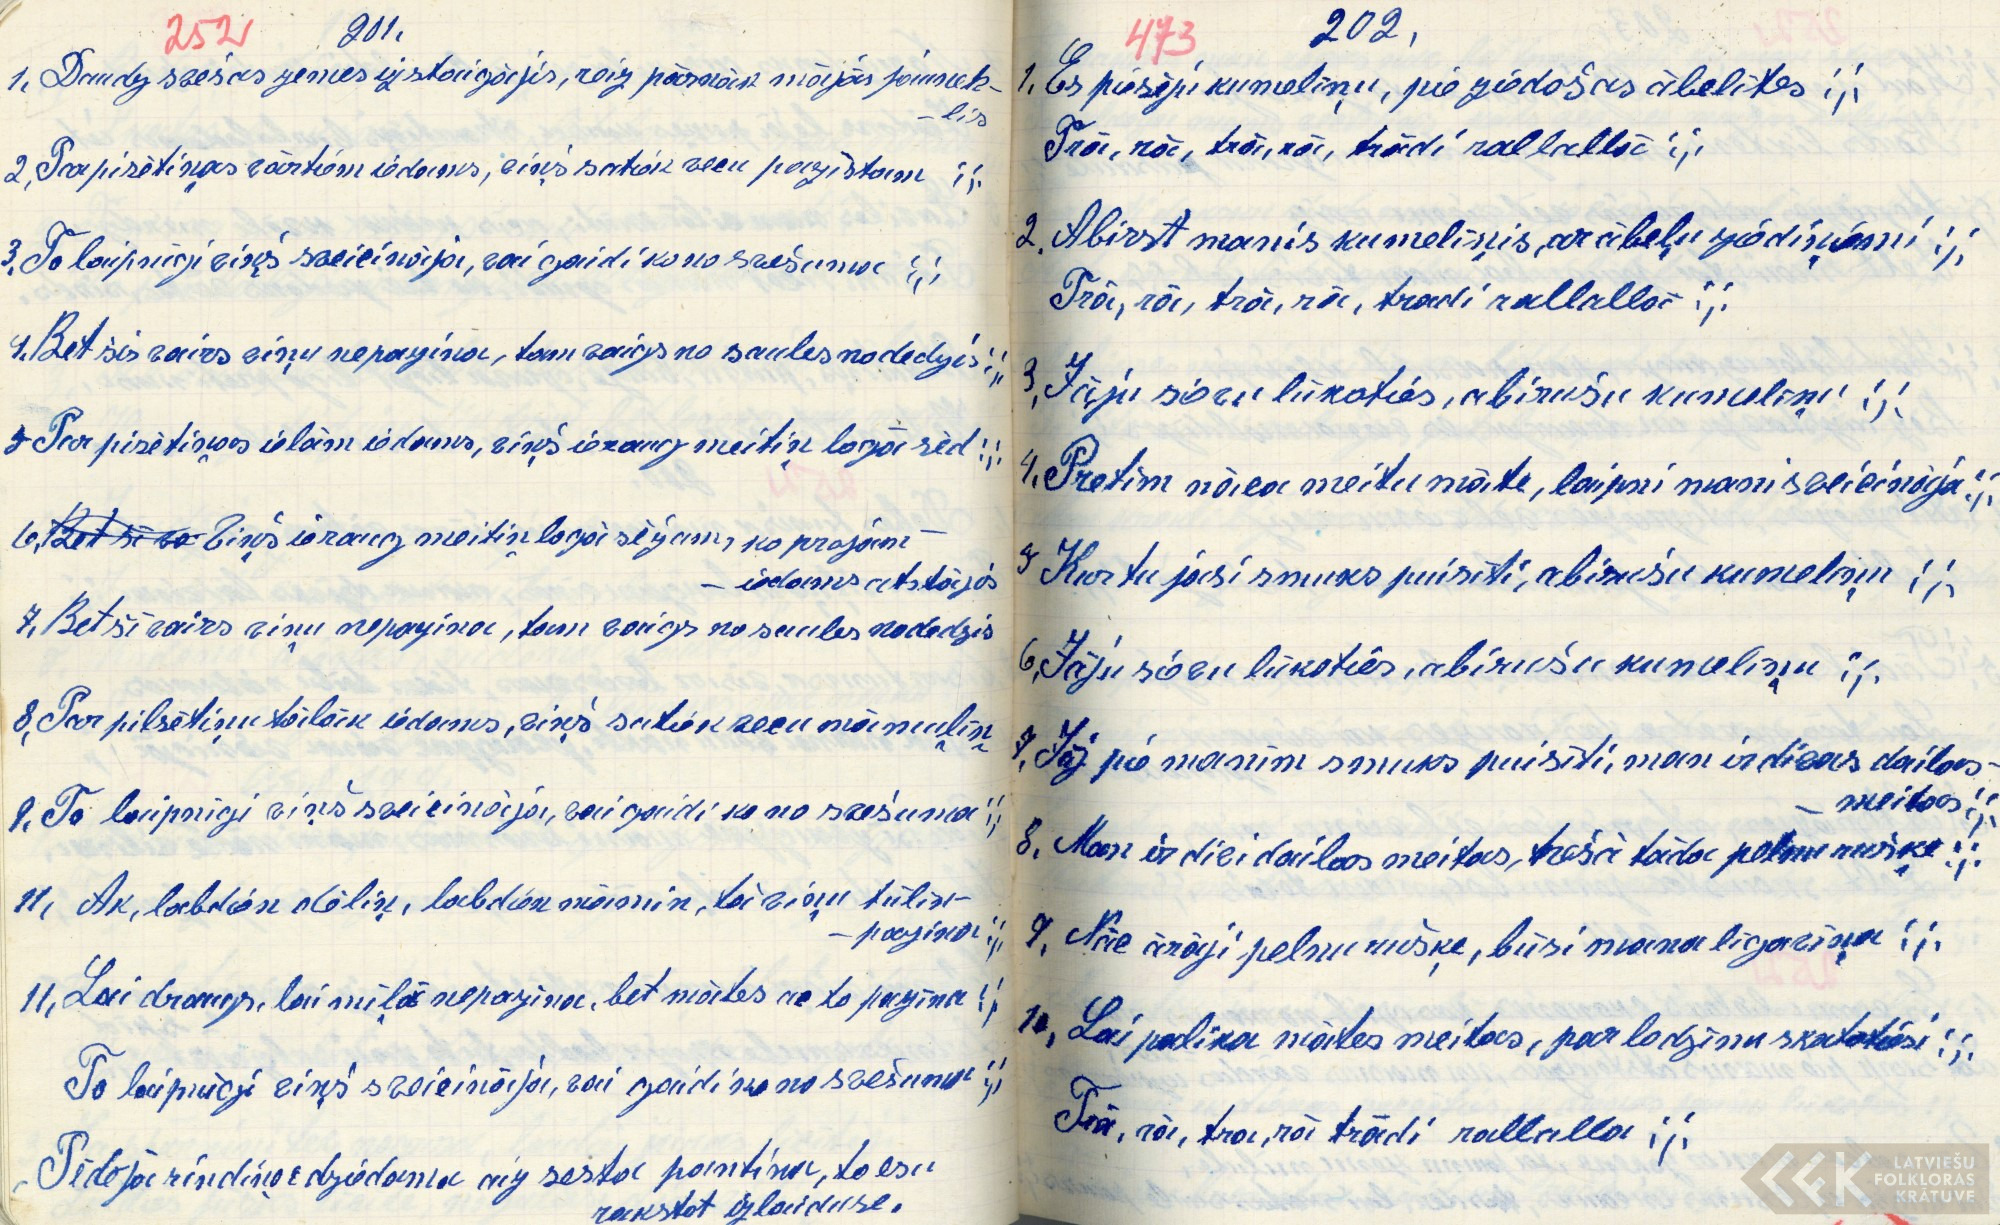 252 201.
1, Daudz svešas zemes izstaigājis, reiz pārnāk mājās jaunek-
- lis
2, Pa pisētiņas vārtiem iedams, viņš satiek vecu pazīstam ;;
3, To laipnīgi viņš sveicināja, vai gaidi ko no svešuma ;;
4, Bet šis vairs viņu nepazina, tam vaigs no saules nodedzis ;;
5 Par pisētiņas ielām iedams, viņš ieraug meitiņ logā sēd ;;
6, Bet šī va viņš ieraug meitiņ logā sēžam, ko projām -
- iedams atstājās
7, Bet šī vairs viņu nepazina, tam vaigs no saules nodedzis
8, Par pilsētiņu tālāk iedams, viņš satiek vecu māmuļiņ
9, To laipnīgi viņš sveicināja, vai gaidi ko no svešuma ;;
11, Ak, labdien dēliņ, labdien māmiņ, tā viņu tūliņ-
- pazina ;;
11, Lai draugs, lai mīļā nepazina, bet mātes ac to pazina ;;
To laipnīgi viņš sveicināja, vai gaidi ko no svešuma ;;
Pēdējā rindiņa e dziedama aiz sesta pantiņa, to esu
rakstot izlaiduse.
473 202,
1, Es piesēju kumeliņu, pie ziedošas ābelītes ;;
Trā, rā, trā, rā, trādi rallallā ;;
2, Abirst manis kumeliņis, ar ābeļu ziediņiemi ;;
Trā, rā, trā, rā, tradi rallallā ;;
3, Jāju sievu lūkoties, abirušu kumeliņu ;;
4, Pretim nāca meitu māte, laipni mani sveicināja ;;
5 Kur tu jāsi smuks puisīti, abirušu kumeliņu ;;
6, Jāju sievu lūkoties, abirušu kumeliņu ;;
7, Jāj pie manim smuks puisīti, man ir divas dailas-
- meitas ;;
8, Man ir divi dailas meitas, trešā tāda pelnu ruške ;;
9, Nāc ārāji pelnu rušķe, būsi mana līgaviņa ;;
10, Lai palika mātes meitas, par lodziņu skatotiesi ;;
Trā, rā, tra, rā trādi rallalla ;;
LATVIEŠU
FOLKLORAS
KRĀTUVE